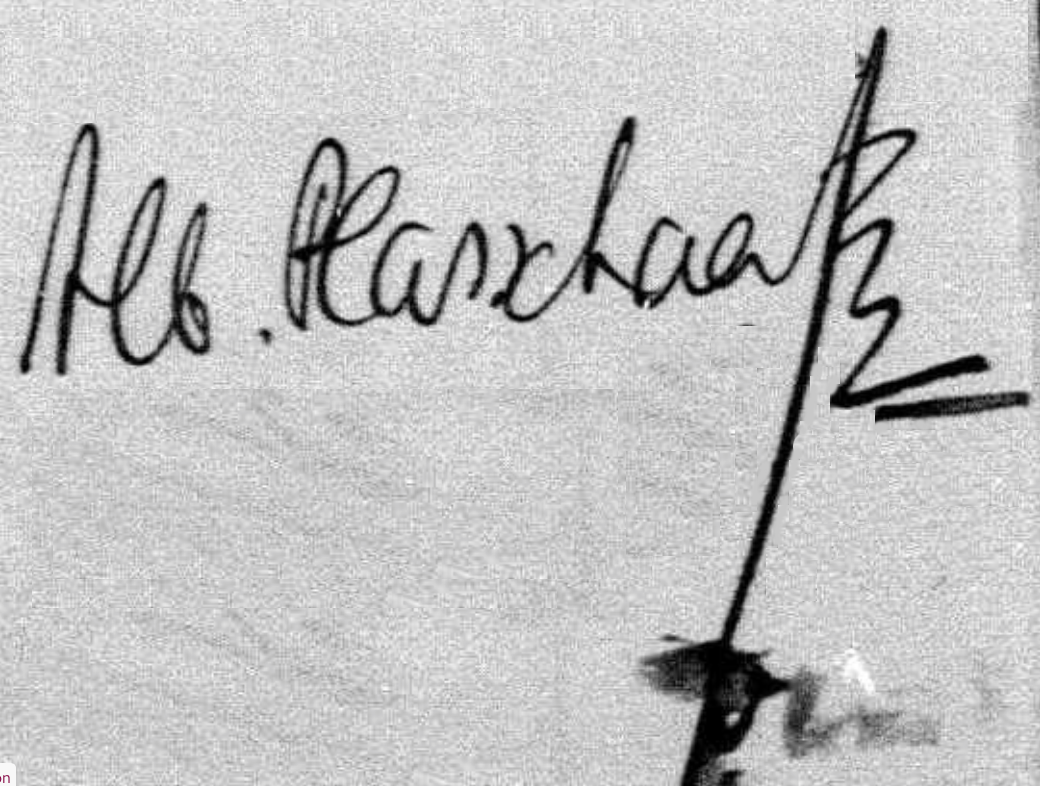 Alb. Plasschaert
on